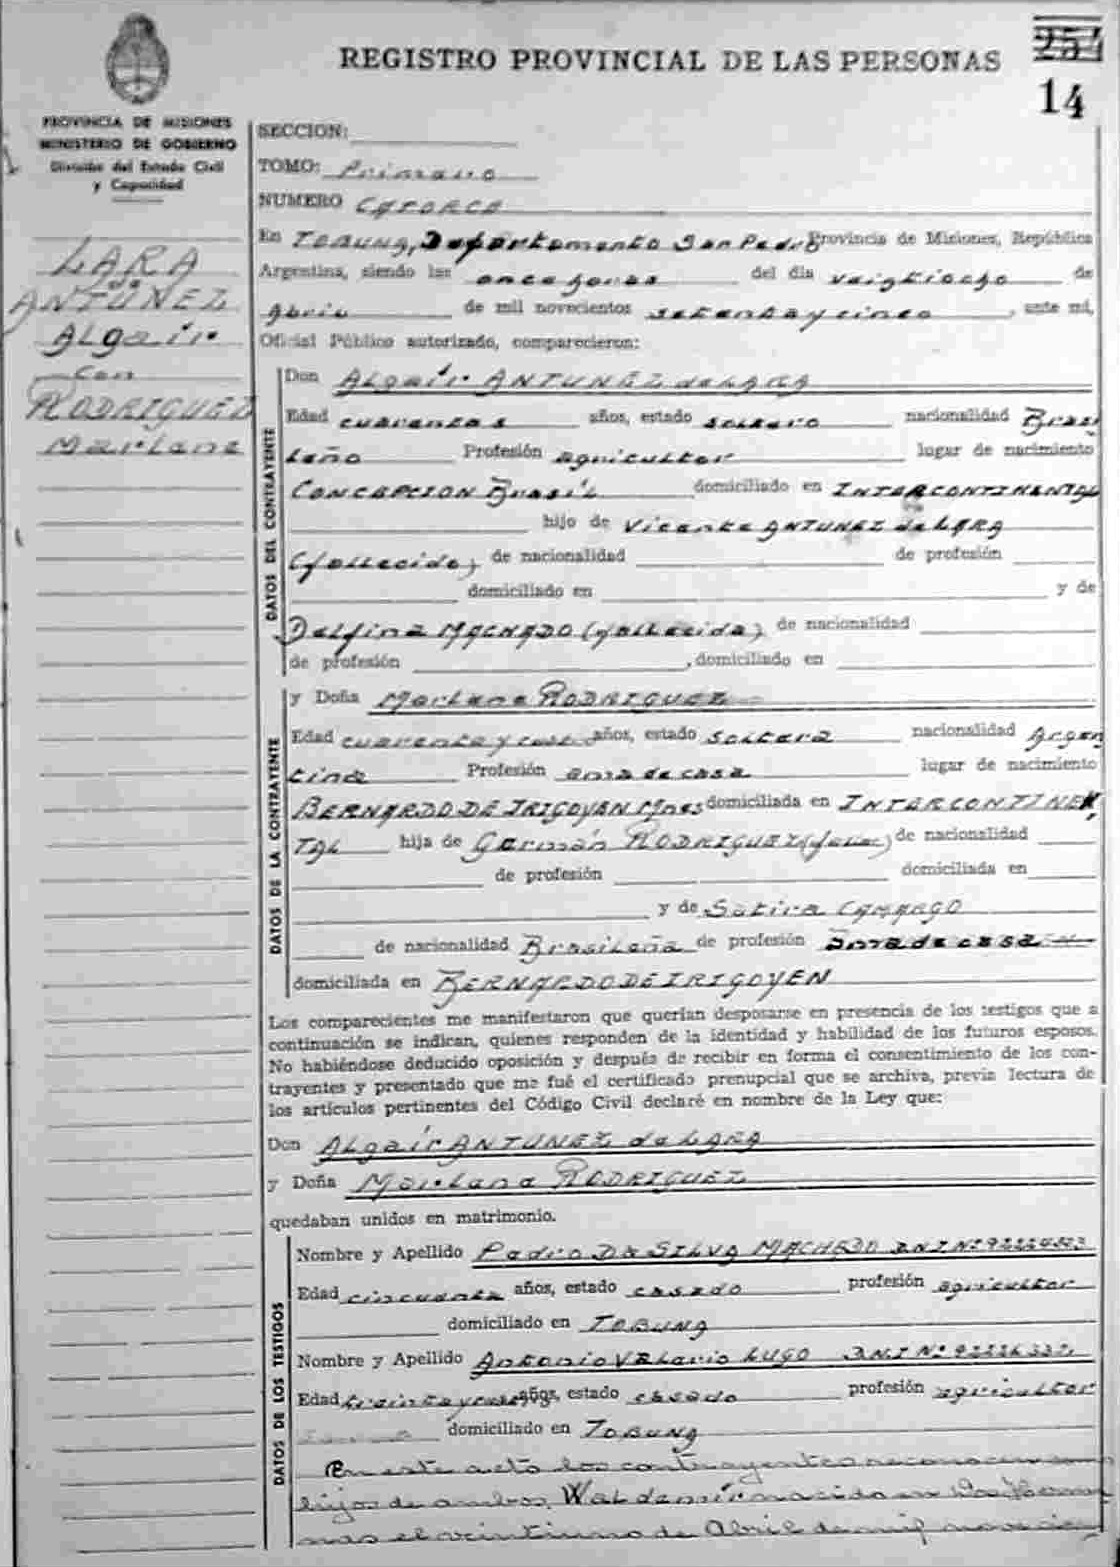 REGISTRO PROVINCIAL DE LAS PERSONAS
251
14
PROVINCIA DE MISIONES
MINISTERIO DE GOBIERNO
División del Estado Civil
y Capacidad
LARA
de
ANTÚNEZ
Algair
con
RODRIGUEZ
Marlene
SECCION:
TOMO: Primero
NUMERO CATORCE
En TOBUNA, Departamento San Pedro Provincia de Misiones, República
Argentina, siendo las once horas del día veigtiocho de
Abril de mil novecientos setenta y cinco, ante mí,
Oficial Público autorizado, comparecieron:
DATOS DEL CONTRAYENTE
Don Algair ANTUNEZ de LARA
Edad cuarenta años, estado soltero nacionalidad Brasi
leño Profesión agricultor lugar de nacimiento
CONCEPCION Brasil domiciliado en INTERCONTINENTAL
hijo de Vicente ANTUNEZ de LARA
(fallecido) de nacionalidad de profesión
domiciliado en y de
Delfina MACHADO (fallecida) de nacionalidad
de profesión , domiciliado en
DATOS DE LA CONTRAYENTE
y Doña Marlene RODRIGUEZ
Edad cuarenta y años, estado soltera nacionalidad Argen
tina Profesión ama de casa lugar de nacimiento
BERNARDO DE IRIGOYEN Mnes domiciliada en INTERCONTINEN
TAL hija de Germán RODRIGUEZ de nacionalidad
de profesión domiciliada en
y de Sotira CAMARGO
de nacionalidad Brasileña de profesión ama de casa
domiciliada en BERNARDO DE IRIGOYEN
Los comparecientes me manifestaron que querían desposarse en presencia de los testigos que a
continuación se indican, quienes responden de la identidad y habilidad de los futuros esposos.
No habiéndose deducido oposición y después de recibir en forma el consentimiento de los con-
trayentes y presentado que me fué el certificado prenupcial que se archiva, previa lectura de
los artículos pertinentes del Código Civil declaré en nombre de la Ley que:
Don Algair ANTUNEZ de LARA
y Doña Marlene RODRIGUEZ
quedaban unidos en matrimonio.
DATOS DE LOS TESTIGOS
Nombre y Apellido Pedro DA SILVA MACHADO D.N.I Nº
Edad cincuenta años, estado casado profesión agricultor
domiciliado en TOBUNA
Nombre y Apellido Antonio Valerio LUGO D.N.I Nº
Edad treinta y años, estado casado profesión agricultor
domiciliado en TOBUNA
En este acto los contrayentes reconocen como
hijos de ambos, Waldemir nacido en Dos Herma
nas el veintiuno de Abril de mil novecien